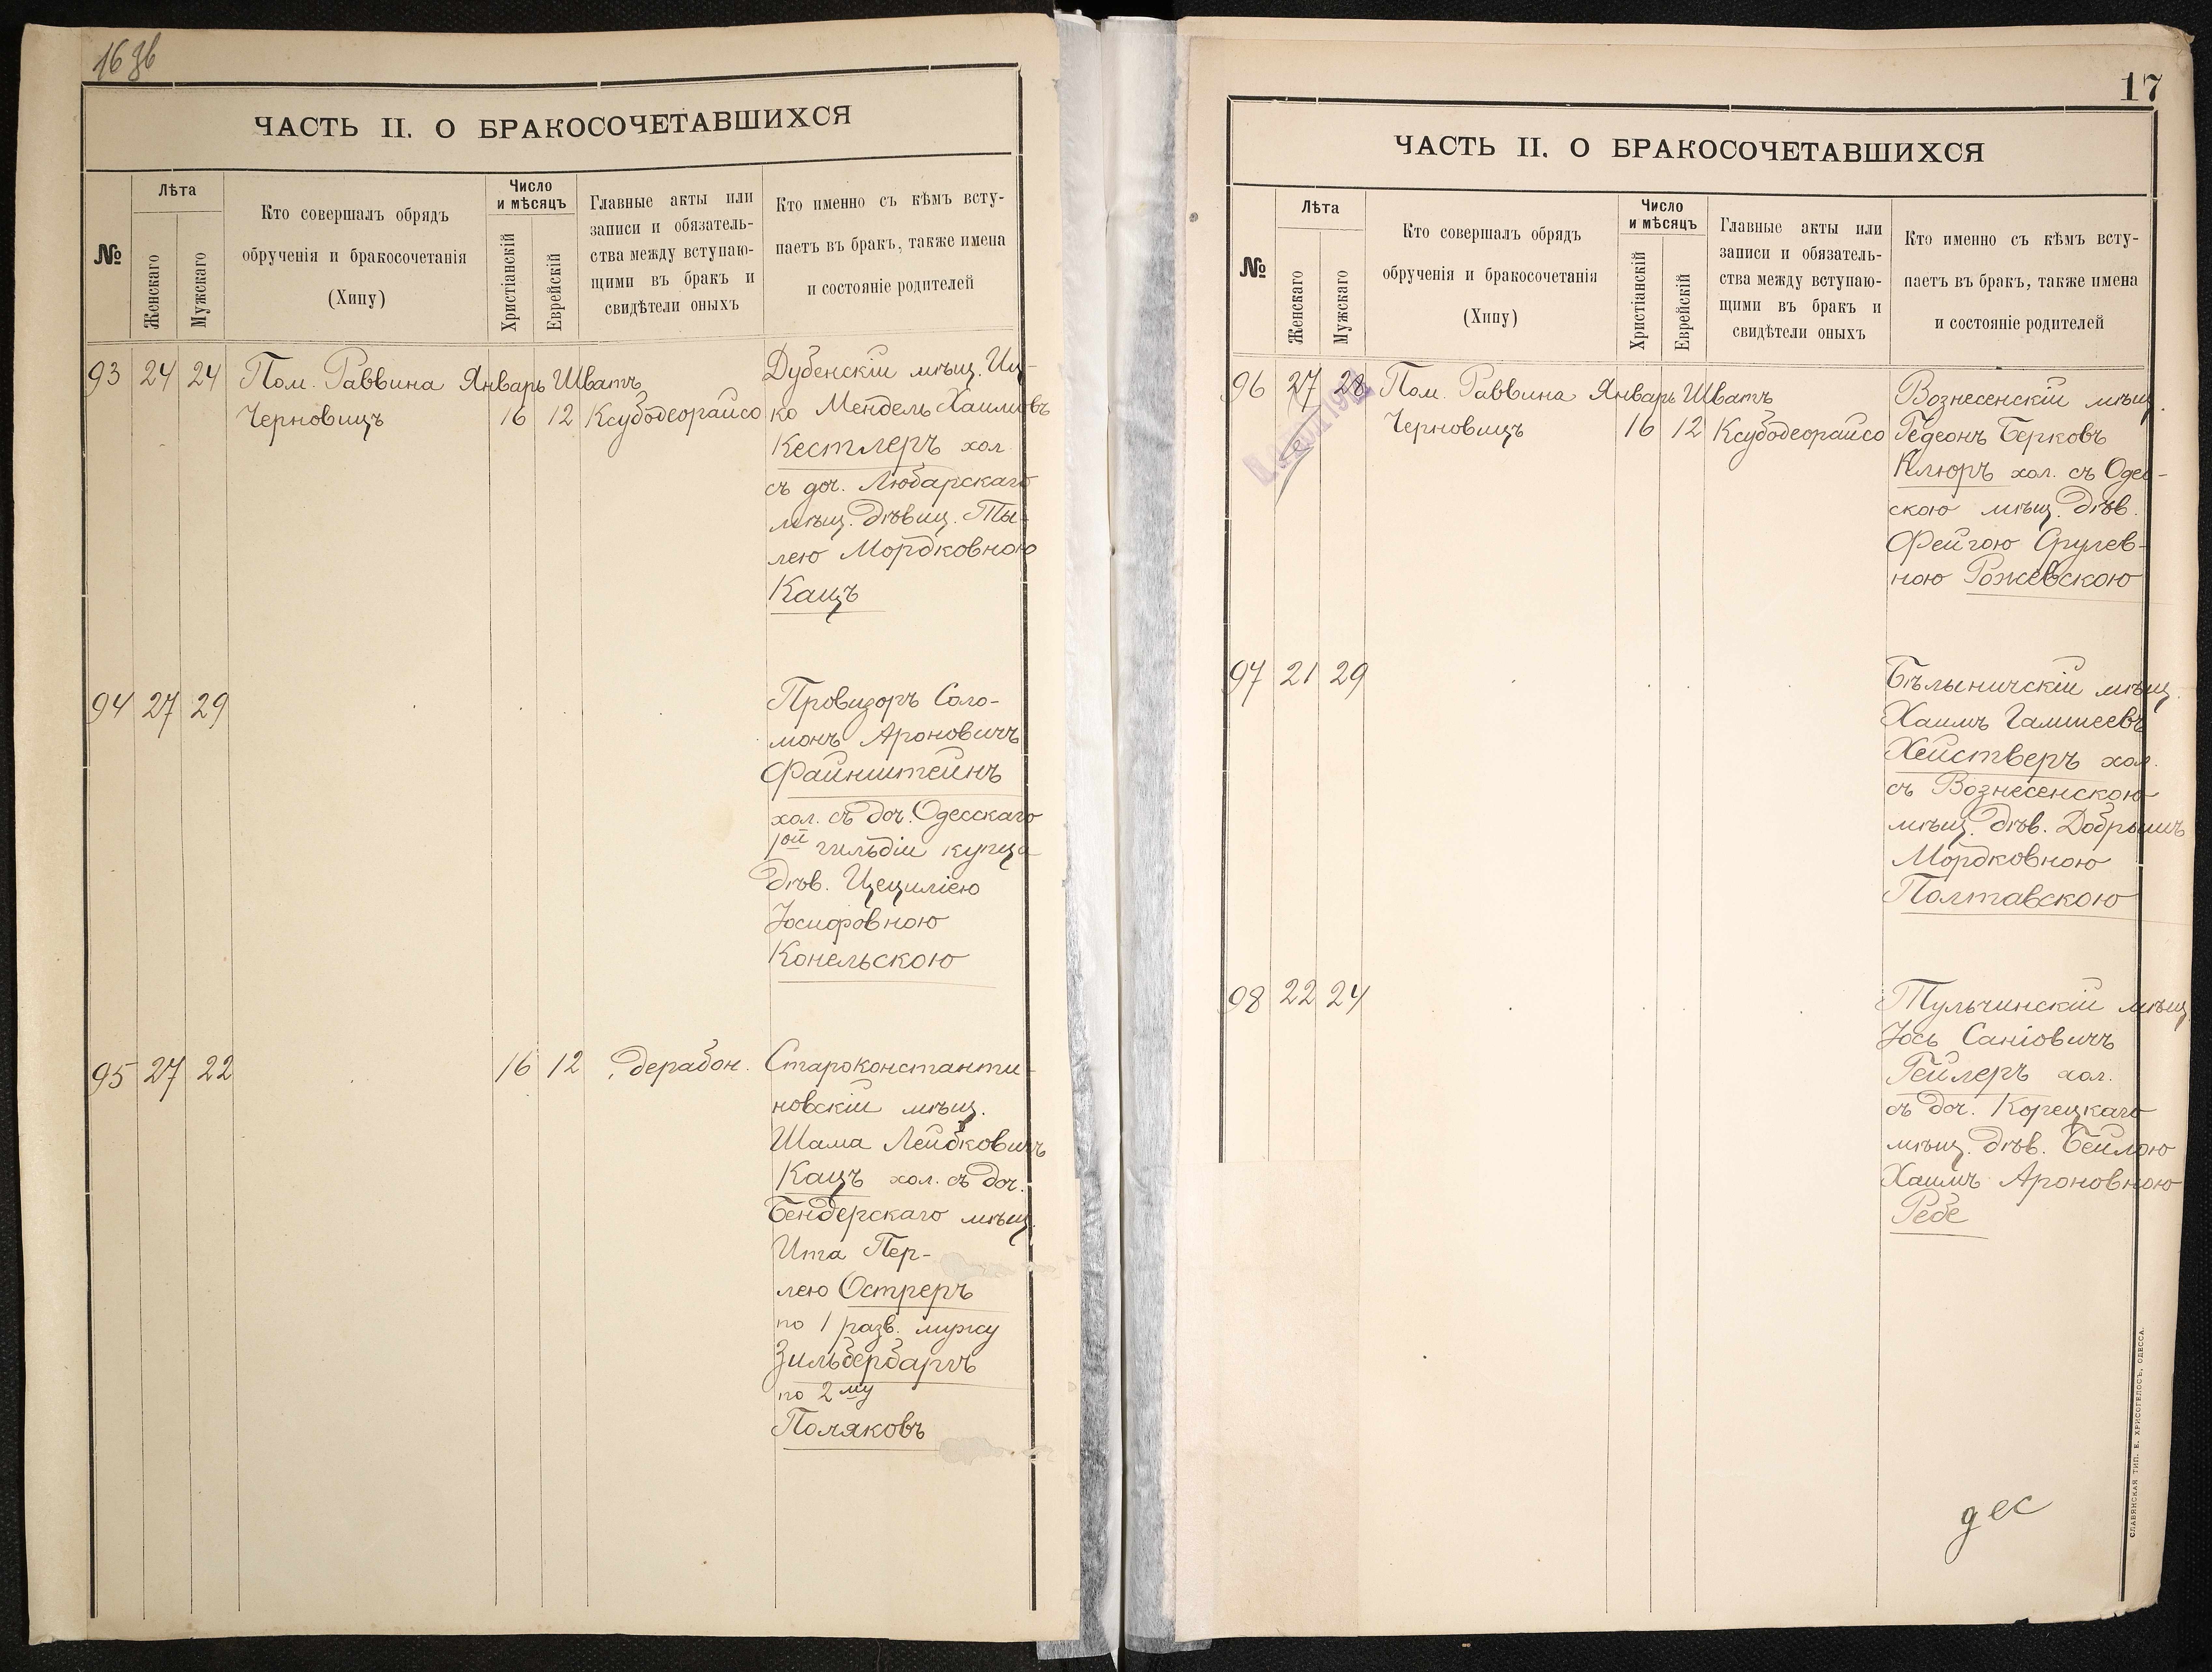 16 зв
ЧАСТЬ II. О БРАКОСОЧЕТАВШИХСЯ
№
Лѣта
Женскаго
Мужскаго
Кто совершалъ обрядъ
обрученія и бракосочетанія
(Хипу)
Число
и мѣсяцъ
Христіанскій
Еврейскій
Главные акты или
записи и обязатель-
ства между вступаю-
щими въ бракъ и
свидѣтели оныхъ
Кто именно съ кѣмъ всту-
паетъ въ бракъ, также имена
и состояніе родителей
93 24 24 Пом. Раввина Январь Шватъ
Черновицъ 16 12 Ксубодеорайсо
Дубенскій мѣщ. Иц-
ко Мендель Хаимовъ
Кестлеръ хол.
съ доч. Любарскаго
мѣщ. дѣвиц. Ты-
лею Мордковною
Кацъ
94 27 29
Провизоръ Соло-
монъ Ароновичъ
Файнштейнъ
хол. съ доч. Одесскаго
1ой гильдіи купца
дѣв. Цециліею
Іосифовною
Конельскою
95 27 22 16 12 дерабон.
Староконстанти-
новскій мѣщ.
Шама Лейбковичъ
Кацъ хол. съ доч.
Бендерскаго мѣщ.
Ита Пер-
лею Остреръ
по 1 разв. мужу
Зильбербаргъ
по 2му
Поляковъ
17
ЧАСТЬ II. О БРАКОСОЧЕТАВШИХСЯ
№
Лѣта
Женскаго
Мужскаго
Кто совершалъ обрядъ
обрученія и бракосочетанія
(Хипу)
Число
и мѣсяцъ
Христіанскій
Еврейскій
Главные акты или
записи и обязатель-
ства между вступаю-
щими въ бракъ и
свидѣтели оныхъ
Кто именно съ кѣмъ всту-
паетъ въ бракъ, также имена
и состояніе родителей
96 27 28 Пом. Раввина Январь Шватъ
Черновицъ 16 12 Ксубодеорайсо
Вознесенскій мѣщ.
Гедеонъ Берковъ
Клюръ хол. съ Одес-
скою мѣщ. дѣв.
Фейгою Срулев-
ною Рожевскою
97 21 29
Бѣлыничскій мѣщ.
Хаимъ Гамшеевъ
Хействеръ хол.
съ Вознесенскою
мѣщ. дѣв. Добрышъ
Мордковною
Полтавскою
98 22 24
Тульчинскій мѣщ.
Іось Саніовичъ
Гейлеръ хол.
съ доч. Корецкаго
мѣщ. дѣв. Бейлою
Хаимъ Ароновною
Ребе
дес
СЛАВЯНСКАЯ ТИП. Е. ХРИСОГЕЛОСЪ, ОДЕССА.